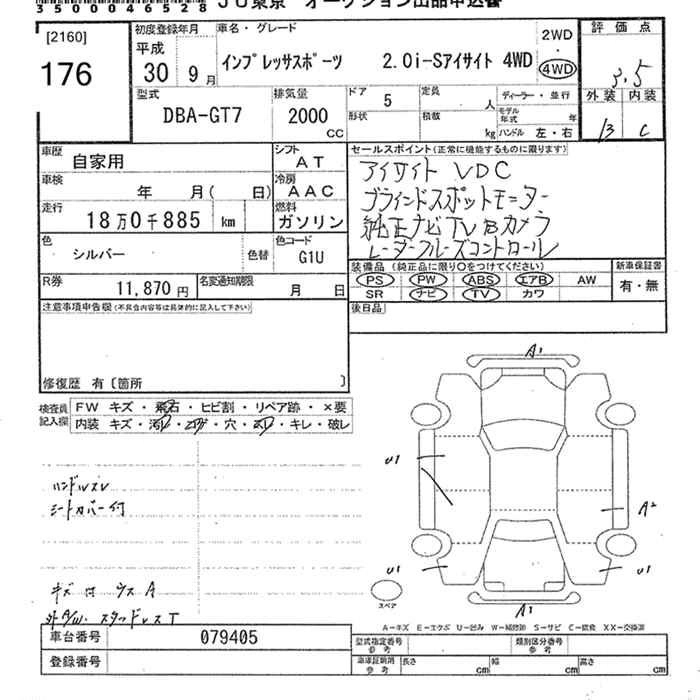 35000446528 JU東京 オークション出品申込書
[2160]
176
初度登録年月
平成
30年 9月
車名・グレード
インプレッサスポーツ 2.0i-Sアイサイト 4WD
2WD
4WD
評価点
3.5
外装 内装
B C
型式
DBA-GT7
排気量
2000 CC
ドア 5
定員 人
形状
積載 kg
ディーラー・並行
モデル年式 年
ハンドル 左・右
車歴
自家用
シフト
AT
車検
年 月( 日)
冷房
AAC
走行
18万0千885 km
燃料
ガソリン
色
シルバー
色替
色コード
G1U
R券
11,870円
名変通知期限
月 日
セールスポイント(正常に機能するものに限ります)
アイサイト VDC
ブラインドスポットモニター
純正ナビTV Bカメラ
レーダークルーズコントロール
装備品 (純正品に限り○をつけてください)
PS PW ABS エアB AW
SR ナビ TV カワ
新車保証書
有・無
後日品
注意事項申告欄(不具合内容等は具体的に記入して下さい)
修復歴 有〔箇所 〕
検査員記入欄
FW キズ・飛石・ヒビ割・リペア跡・×要
内装 キズ・汚レ・コゲ・穴・スレ・キレ・破レ
ハンドルスレ
シートカバー付
キズ ウス A
外A/W. スタッドレスT
A1
U1
A2
U1
U1
A1
スペア
A-キズ E-エクボ U-凹み W-補修跡 S-サビ C-腐食 XX-交換済
車台番号
079405
登録番号
型式指定番号
参考
類別区分番号
参考
車庫証明用
参考
長さ cm 幅 cm 高さ cm